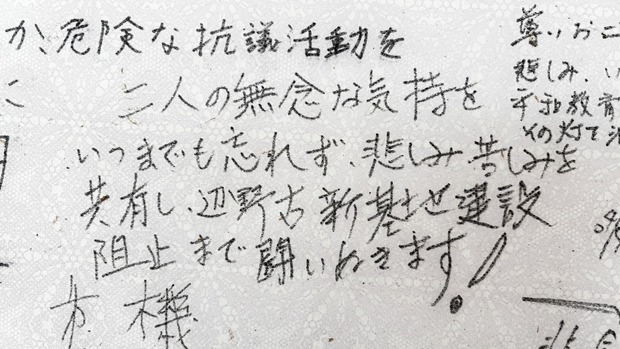 か、危険な抗議活動を
二人の無念な気持を
いつまでも忘れず、悲しみ苦しみを
共有し、辺野古新基地建設
阻止まで闘いぬきます!
機
尊いお二
悲しみ、い
平和教育
の灯を